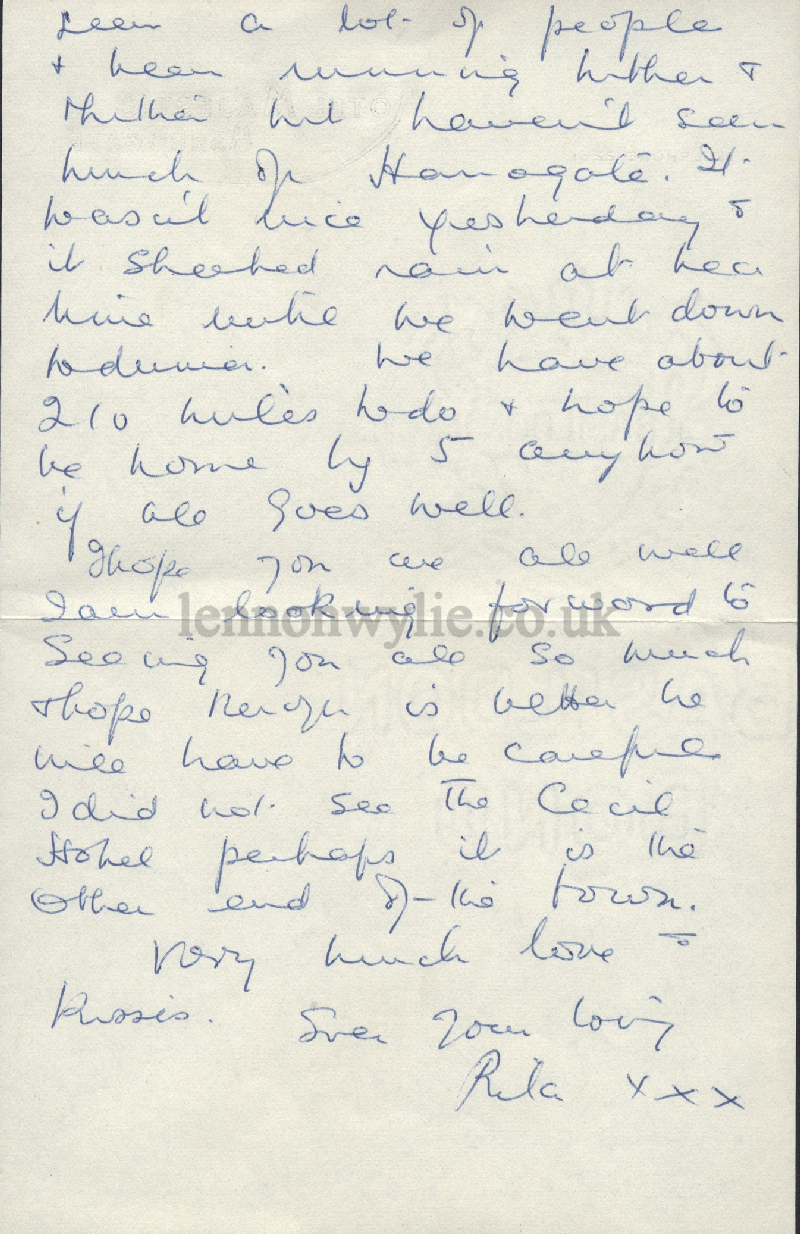 seen a lot of people
& been running hither &
thither but haven't seen
much of Harrogate. It
wasn't nice yesterday &
it sheeted rain at tea
time until we went down
to dinner. We have about
210 miles to do & hope to
be home by 5 anyhow
if all goes well.
I hope you are all well
I am looking forward to
Seeing you all so much
& hope Mervyn is better he
will have to be careful
I did not see the Cecil
Hotel perhaps it is the
other end of the town.
Very much love &
Kisses. Ever your loving
Rita xxx
lennonwylie.co.uk